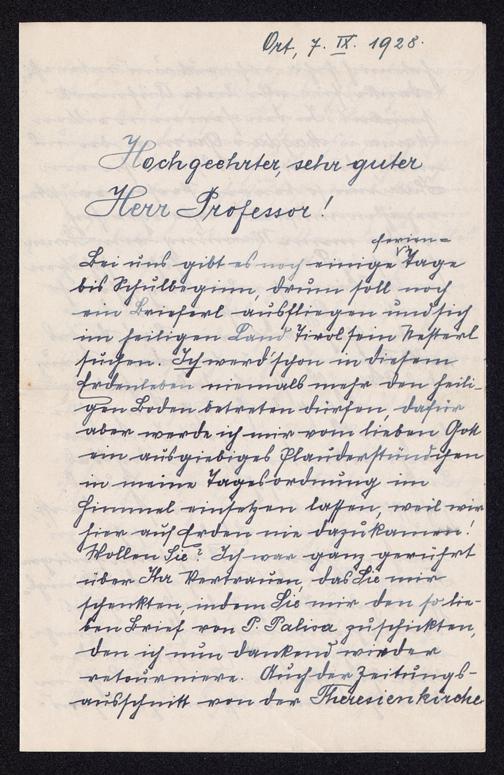 Ort, 7. IX. 1928.
Hochgeehrter, sehr guter
Herr Professor!
ferien=
Bei uns gibt es noch einige Tage
bis Schulbeginn, drum soll noch
ein Brieferl ausfliegen und sich
im heiligen Land Tirol sein Nesterl
suchen. Ich werd' schon in diesem
Erdenleben niemals mehr den heili-
gen Boden betreten dürfen, dafür
aber werde ich mir vom lieben Gott
ein ausgiebiges Plauderstündchen
in meine Tagesordnung im
Himmel einsetzen lassen, weil wir
hier auf Erden nie dazukamen!
Wollen Sie? Ich war ganz gerührt
über Ihr Vertrauen, das Sie mir
schenkten, indem Sie mir den so lie-
ben Brief von P. Palisa zuschickten,
den ich nun dankend wieder
retourniere. Auch der Zeitungs-
ausschnitt von der Theresienkirche